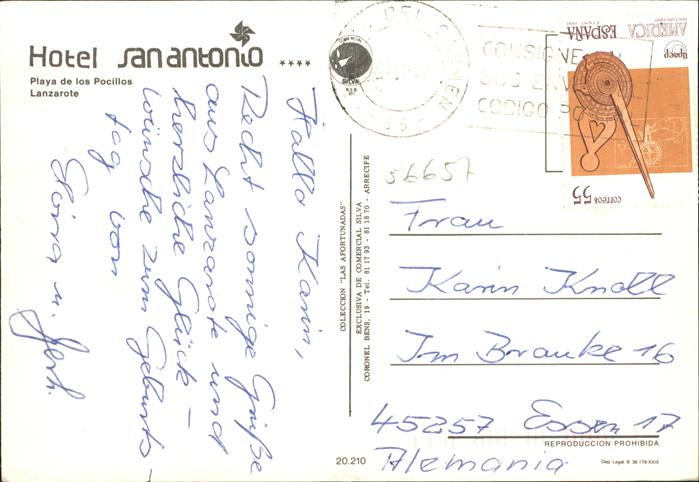 Hotel SANANTONIO ****
Playa de los Pocillos
Lanzarote
Hallo Karin,
Recht sonnige Grüße
aus Lanzarote und
herzliche Glück-
wünsche zum Geburts-
tag von
u. Gerh.
COLECCION "LAS AFORTUNADAS"
EXCLUSIVA DE COMERCIAL SILVA
CORONEL BENS, 19 - Tel. 81 17 93 - 81 18 70 - ARRECIFE
20.210
COMERCIAL
SILVA
DEL CARMEN
CONSIGNE
SUS ENV
CODIGO PO
AMERICA
ESPAÑA
upaep
correos 55
56657
Frau
Karin Knoll
Im Brauke 16
45257 Essen 17
Alemania
REPRODUCCION PROHIBIDA
Dep. Legal B. 36.179-XXIX